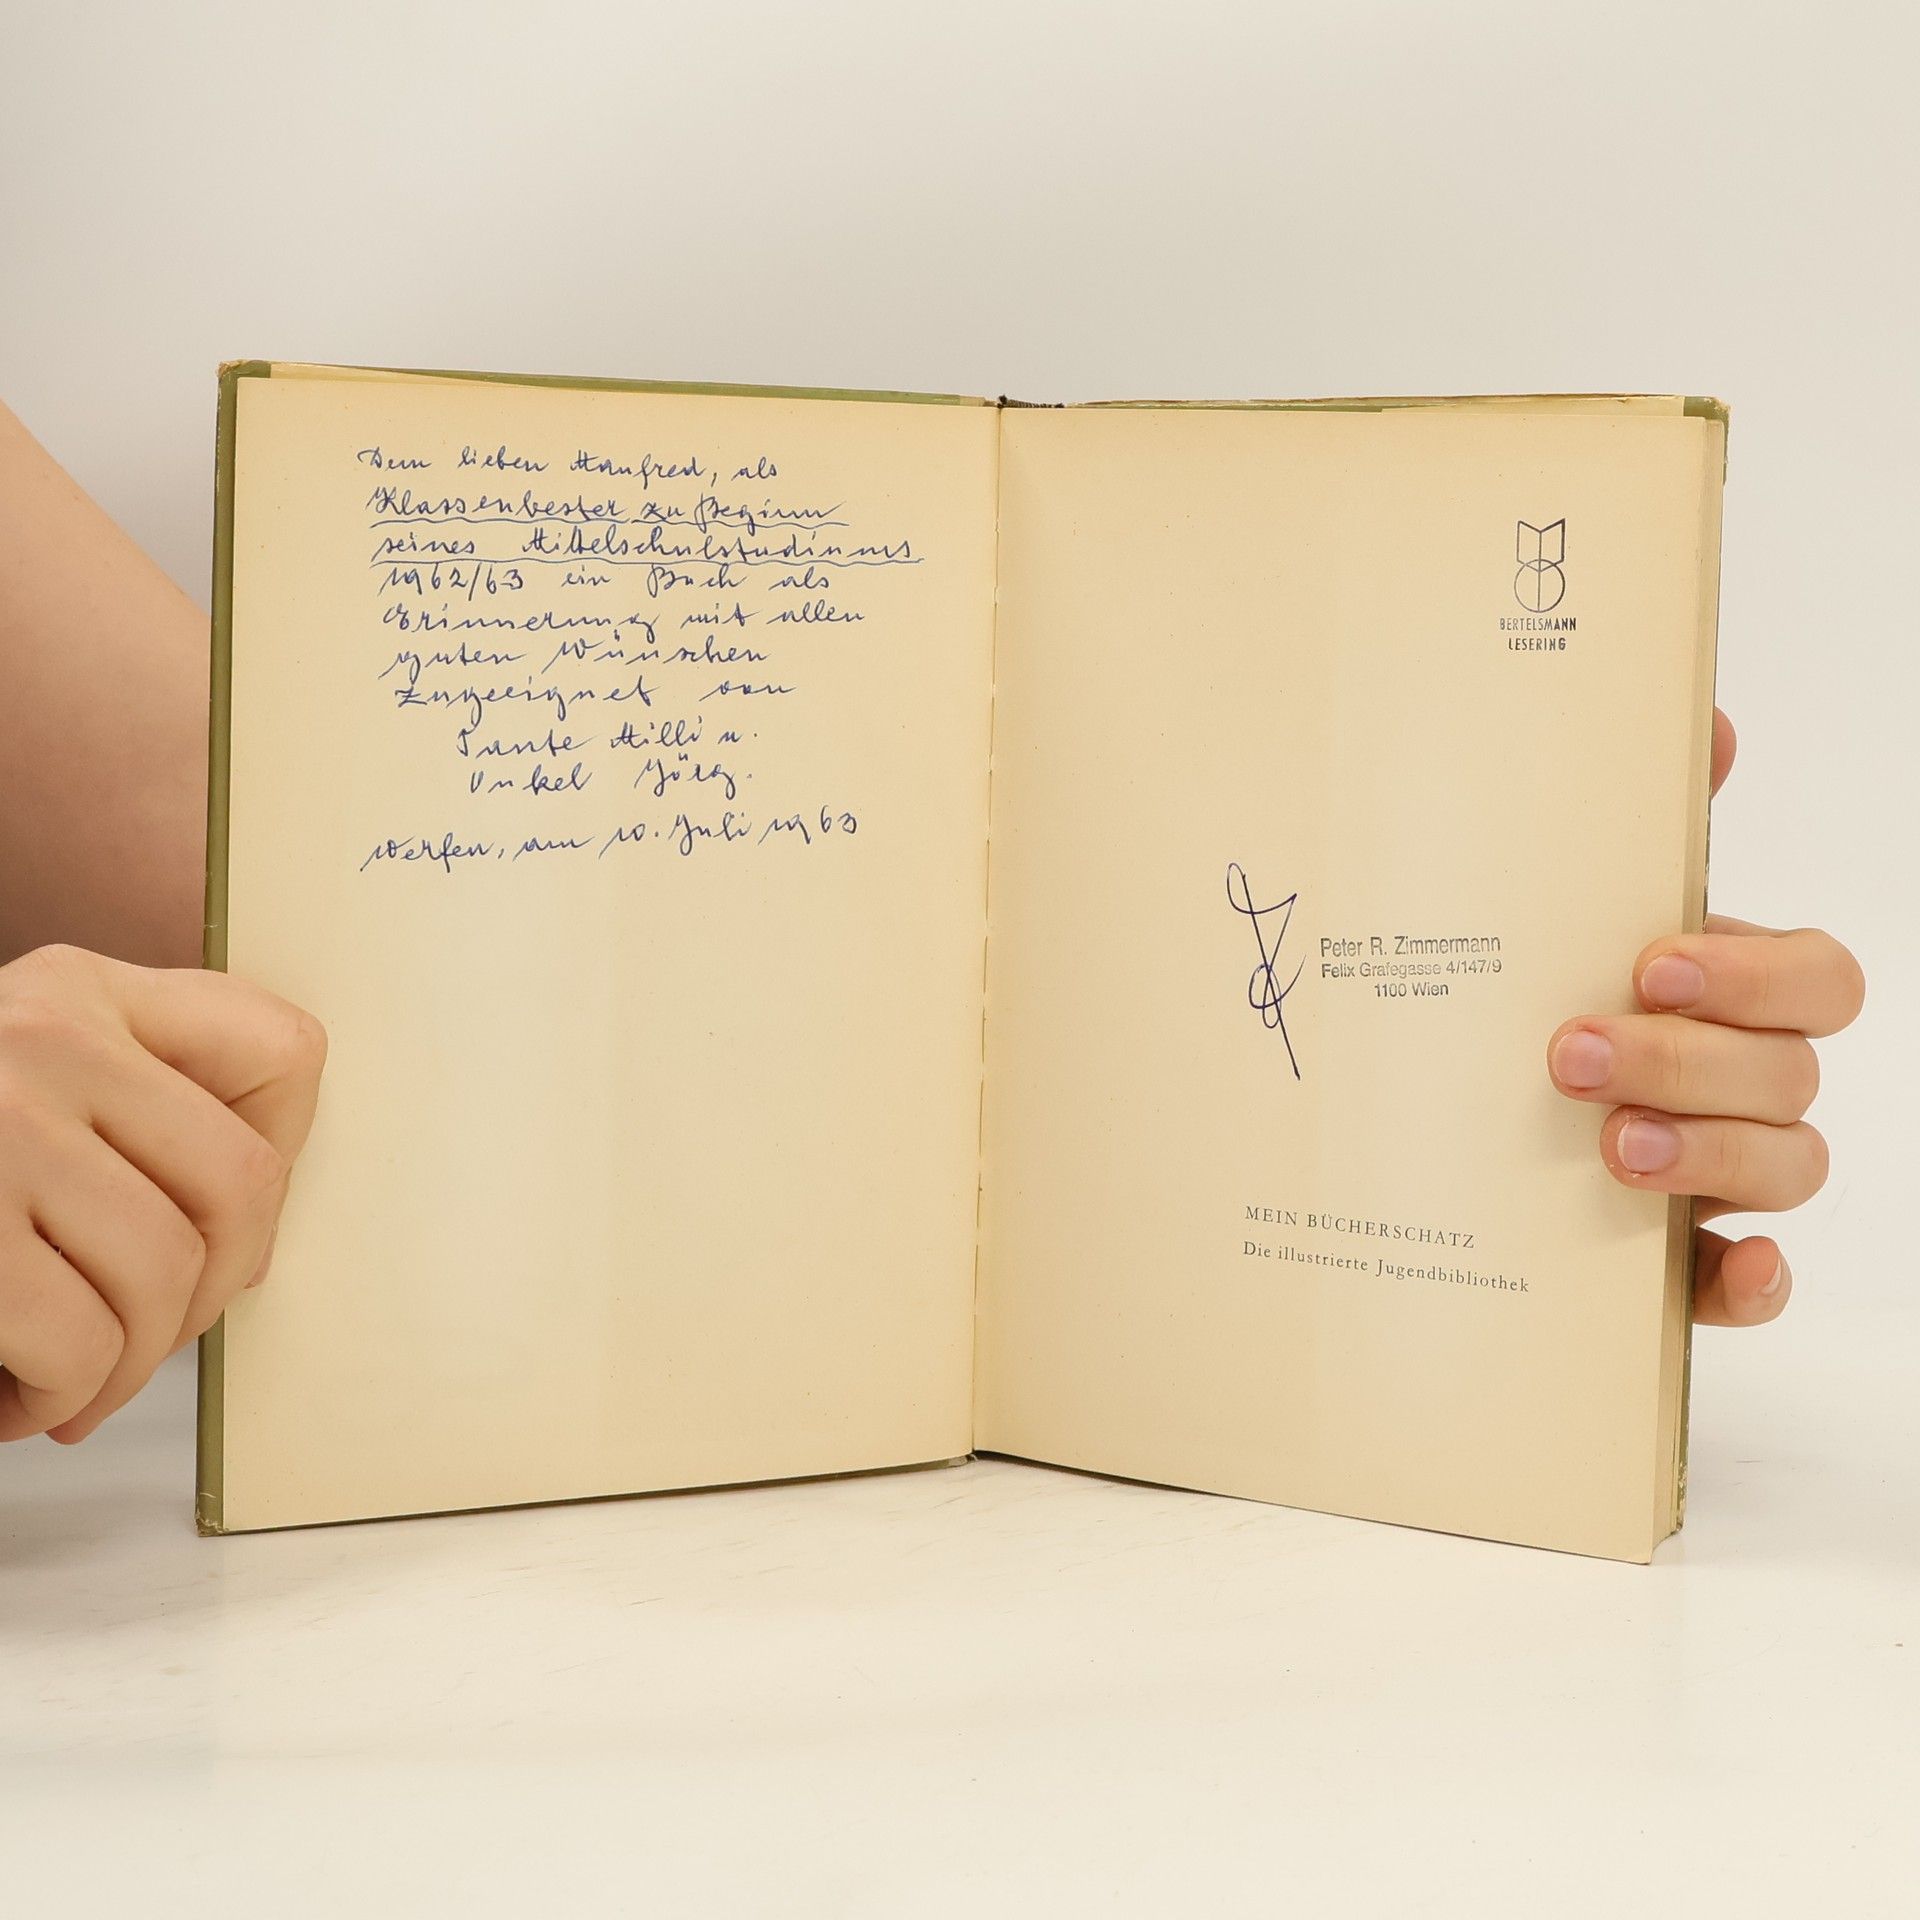 Dem lieben Manfred, als
Klassenbester zu Beginn
seines Mittelschulstudiums
1962/63 ein Buch als
Erinnerung mit allen
guten Wünschen
zugeeignet von
Tante Milli u.
Onkel Jörg.
Werfen, am 10. Juli 1963
BERTELSMANN
LESERING
Peter R. Zimmermann
Felix Grafegasse 4/147/9
1100 Wien
MEIN BÜCHERSCHATZ
Die illustrierte Jugendbibliothek